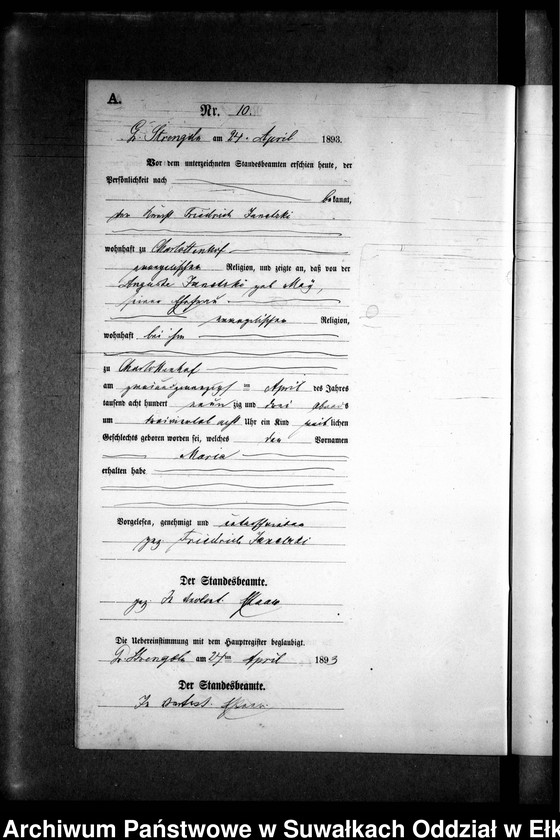 A.
Nr. 10.
Gr. Strengeln am 24. April 1893.
Vor dem unterzeichneten Standesbeamten erschien heute, der
Persönlichkeit nach
bekannt,
der Friedrich
wohnhaft zu Charlottenhof
evangelischer Religion, und zeigte an, daß von der
Auguste geb.
seiner Ehefrau
evangelischer Religion,
wohnhaft bei ihm
zu Charlottenhof
am April des Jahres
tausend acht hundert neun zig und drei abends
um acht Uhr ein Kind weiblichen
Geschlechts geboren worden sei, welches den Vornamen
Maria
erhalten habe
Vorgelesen, genehmigt und unterschrieben
gez. Friedrich
Der Standesbeamte.
gez. In
Die Uebereinstimmung mit dem Hauptregister beglaubigt.
Gr. Strengeln am 24ten April 1893
Der Standesbeamte.
In
Archiwum Państwowe w Suwałkach Oddział w Ełk